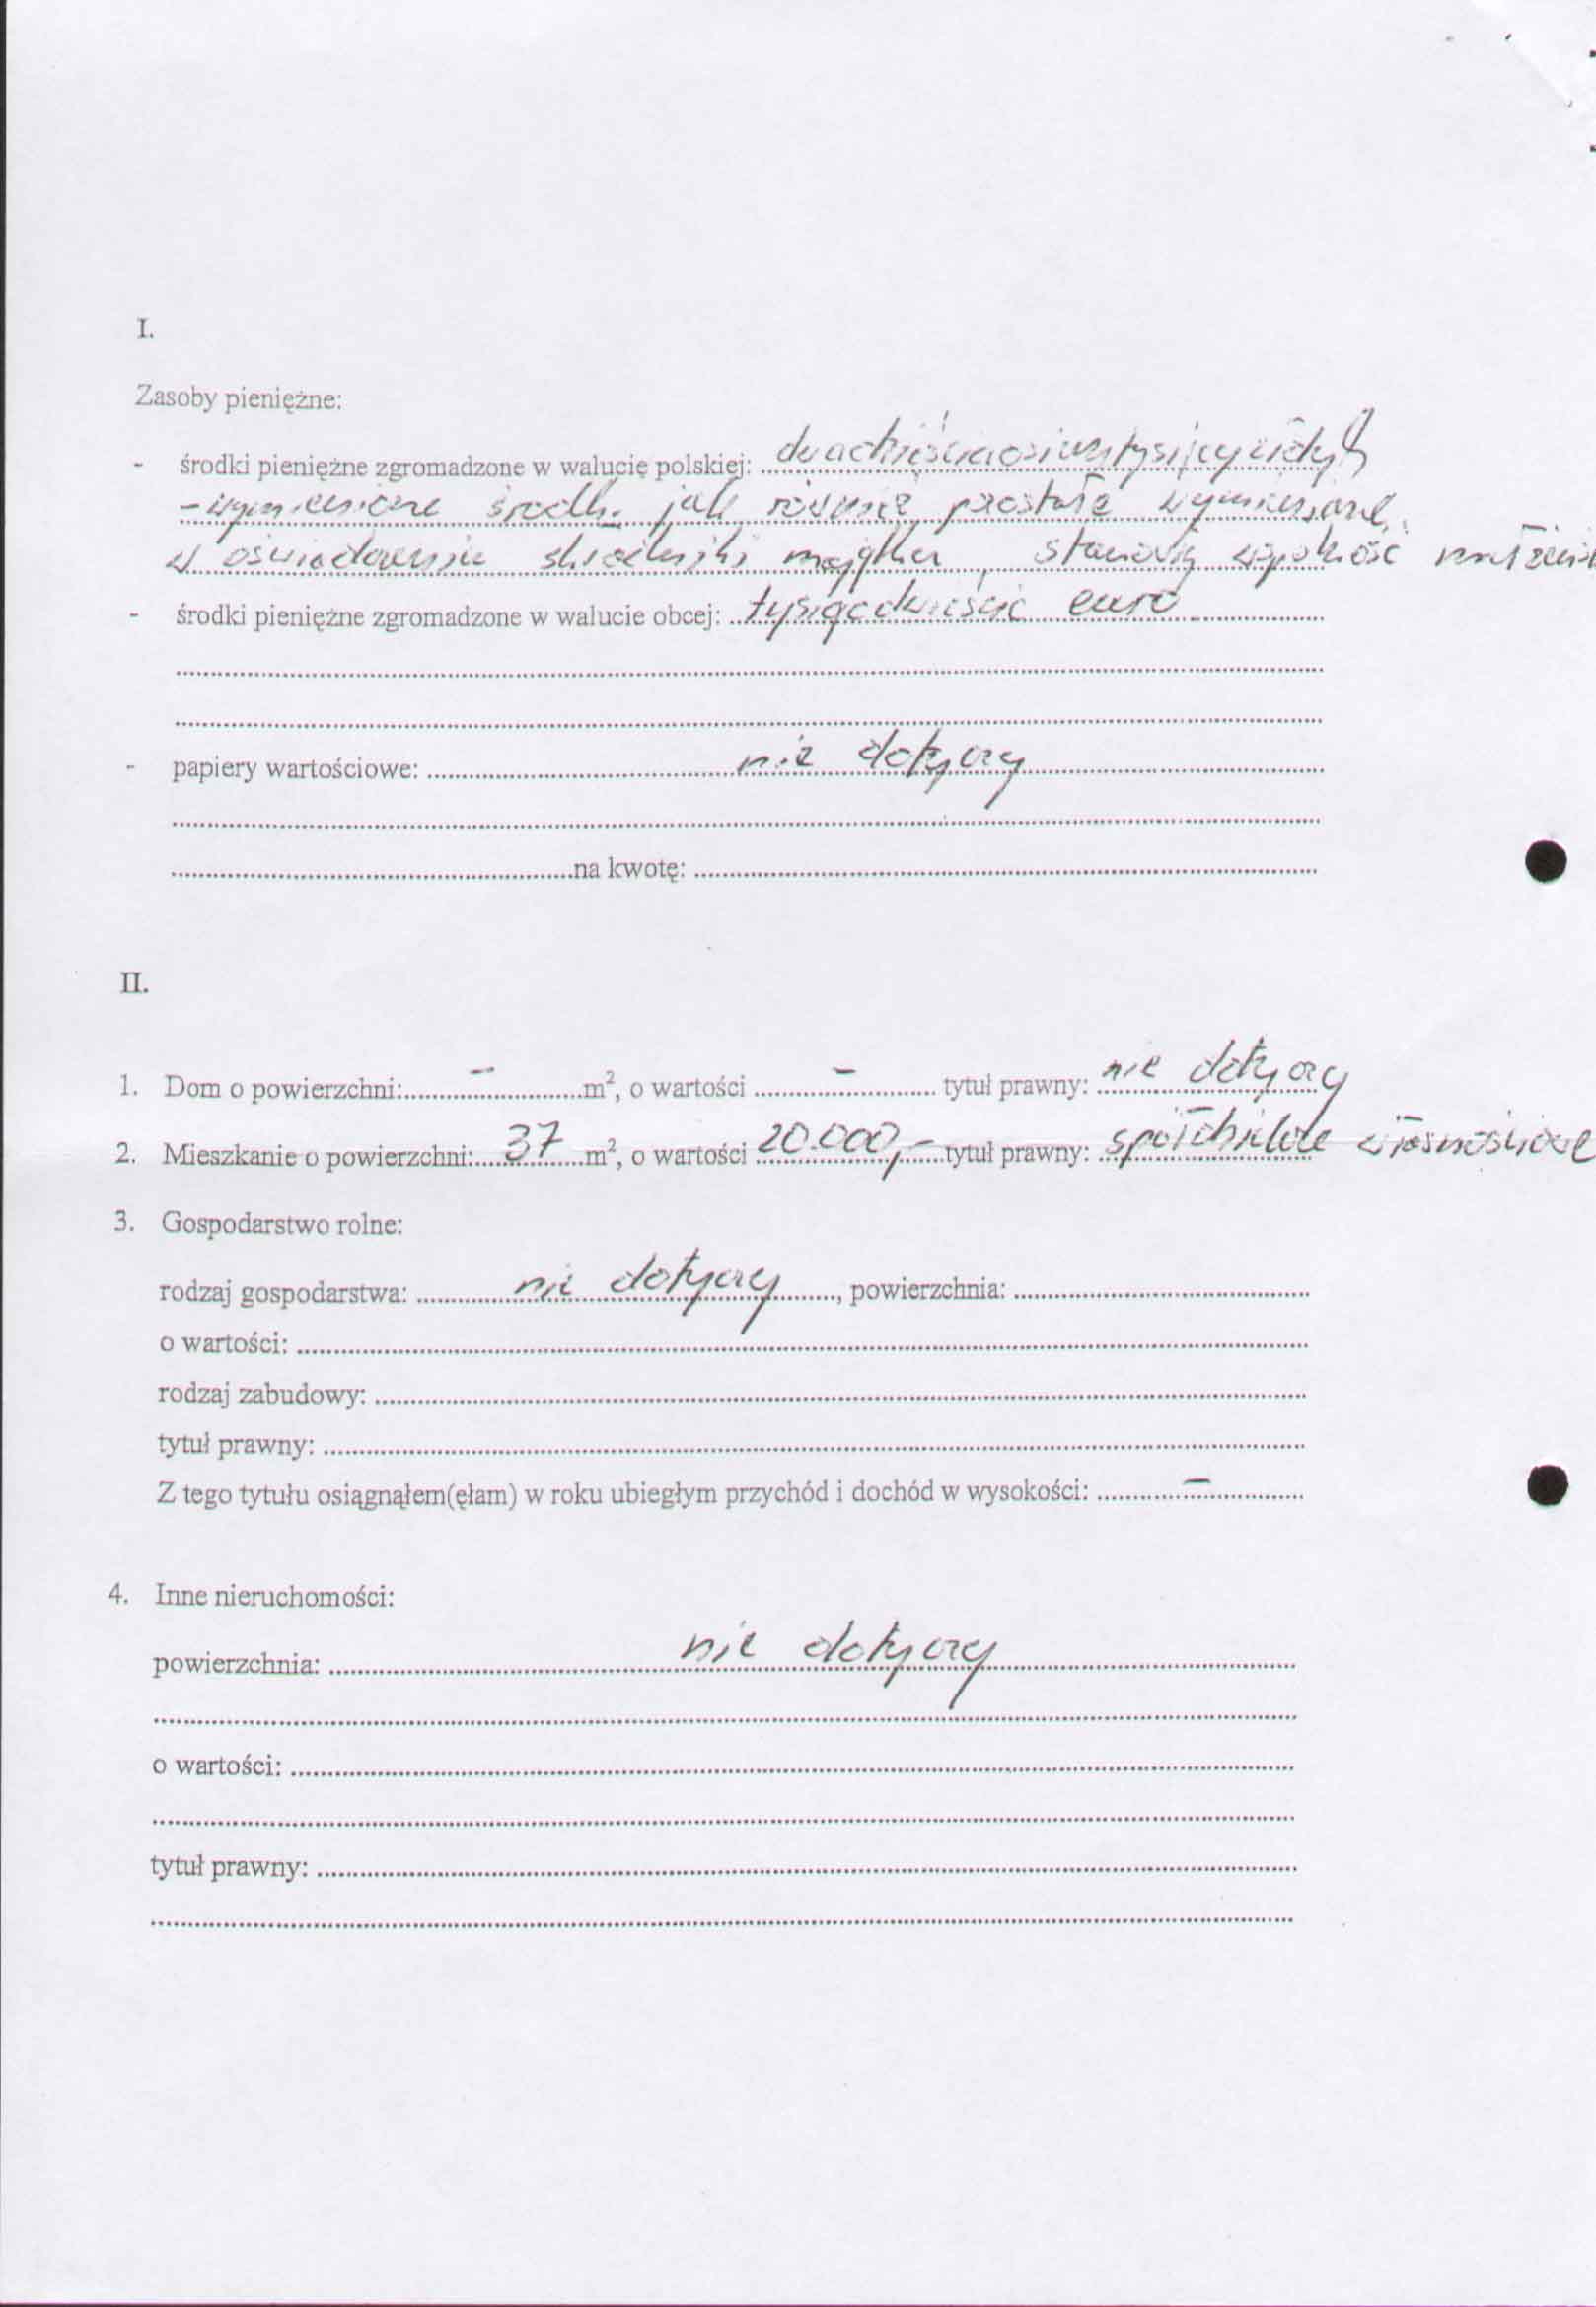 I.
Zasoby pieniężne:
- środki pieniężne zgromadzone w walucie polskiej: dwadzieściaosiemtysięcyzłotych
- wymienione środki jak również pozostałe wymienione
w oświadczeniu składniki majątku, stanowią wspólność małżeńs
- środki pieniężne zgromadzone w walucie obcej: tysiącdwieście euro
- papiery wartościowe: nie dotyczy
na kwotę:
II.
1. Dom o powierzchni: – m², o wartości – tytuł prawny: nie dotyczy
2. Mieszkanie o powierzchni: 37 m², o wartości 20.000,- tytuł prawny: spółdzielcze własnościowe
3. Gospodarstwo rolne:
rodzaj gospodarstwa: nie dotyczy, powierzchnia:
o wartości:
rodzaj zabudowy:
tytuł prawny:
Z tego tytułu osiągnąłem(ęłam) w roku ubiegłym przychód i dochód w wysokości: –
4. Inne nieruchomości:
powierzchnia: nie dotyczy
o wartości:
tytuł prawny: